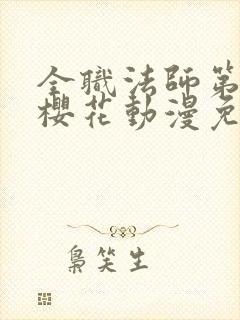 全職法師第
櫻花動漫免
梟笑生